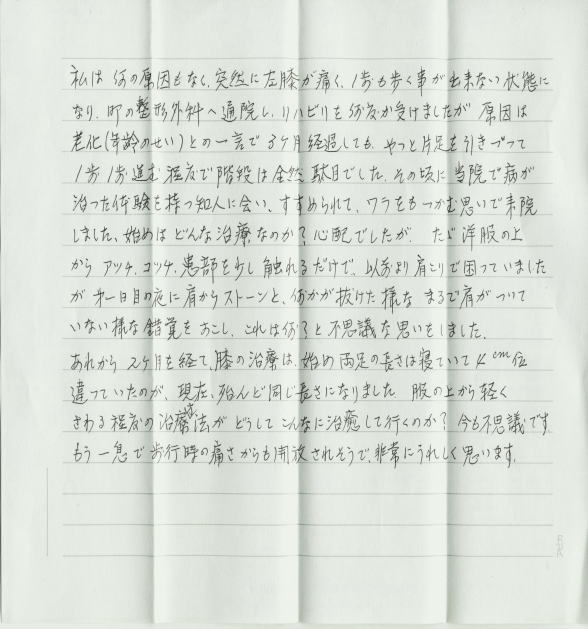 私は何の原因もなく、突然に左膝が痛く、1歩も歩く事が出来ない状態に
なり、町の整形外科へ通院し、リハビリを何度か受けましたが 原因は
老化(年齢のせい)との一言で 3ヶ月経過しても、やっと片足を引きづって
1歩1歩進む程度で階段は全然駄目でした。その頃に当院で病が
治った体験を持つ知人に会い、すすめられて、ワラをもつかむ思いで来院
しました。始めはどんな治療なのか?心配でしたが、ただ洋服の上
から アッチ、コッチ、患部を少し触れるだけで、以前より肩こりで困っていました
が 才一日目の夜に肩からストーンと、何かが抜けた様な まるで肩がついて
いない様な錯覚をおこし、これは何?と不思議な思いをしました。
あれから 2ヶ月を経て、膝の治療は、始め両足の長さは寝ていて4cm位
違っていたのが、現在、殆んど同じ長さになりました 服の上から軽く
さわる程度の治療法が どうしてこんなに治癒して行くのか?今も不思議です
もう一息で歩行時の痛さからも開放されそうで、非常にうれしく思います。